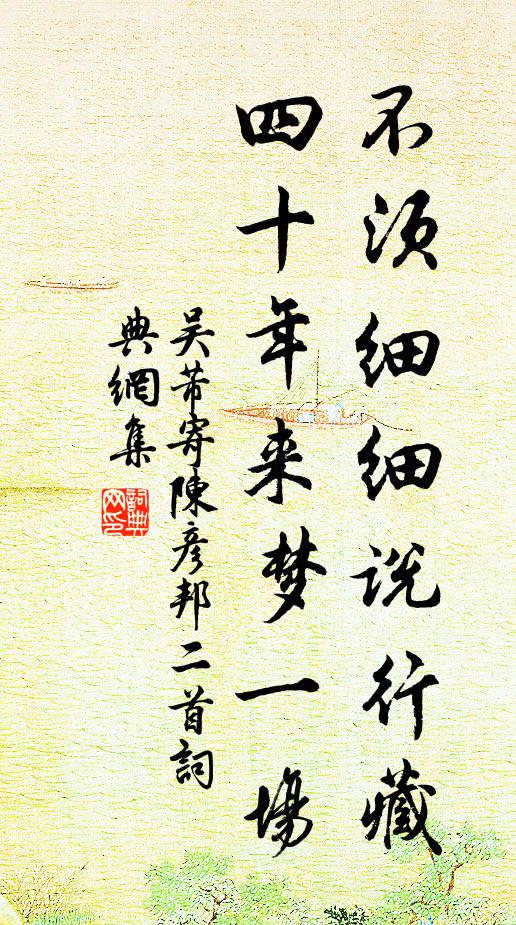 不须细细说行藏
四十年来梦一場
吴芾寄陳彦邦二首詞
典網集
詞典網印